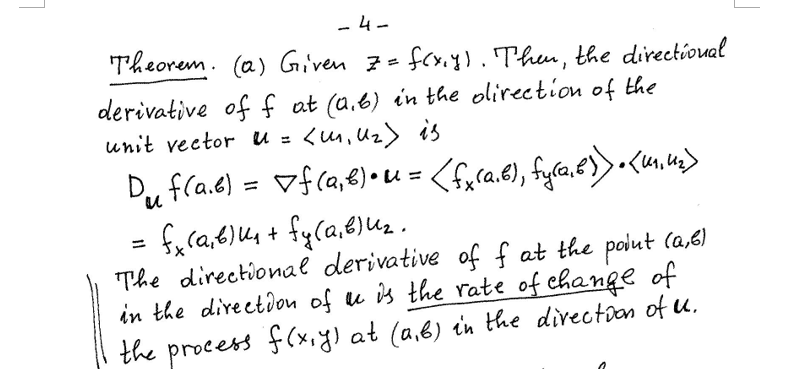 - 4 -
Theorem. (a) Given z = f(x,y). Then, the directional
derivative of f at (a,b) in the direction of the
unit vector u = <u₁, u₂> is
D_u f(a,b) = ∇f(a,b)•u = <f_x(a,b), f_y(a,b)>•<u₁,u₂>
= f_x(a,b)u₁ + f_y(a,b)u₂.
The directional derivative of f at the point (a,b)
in the direction of u is the rate of change of
the process f(x,y) at (a,b) in the direction of u.